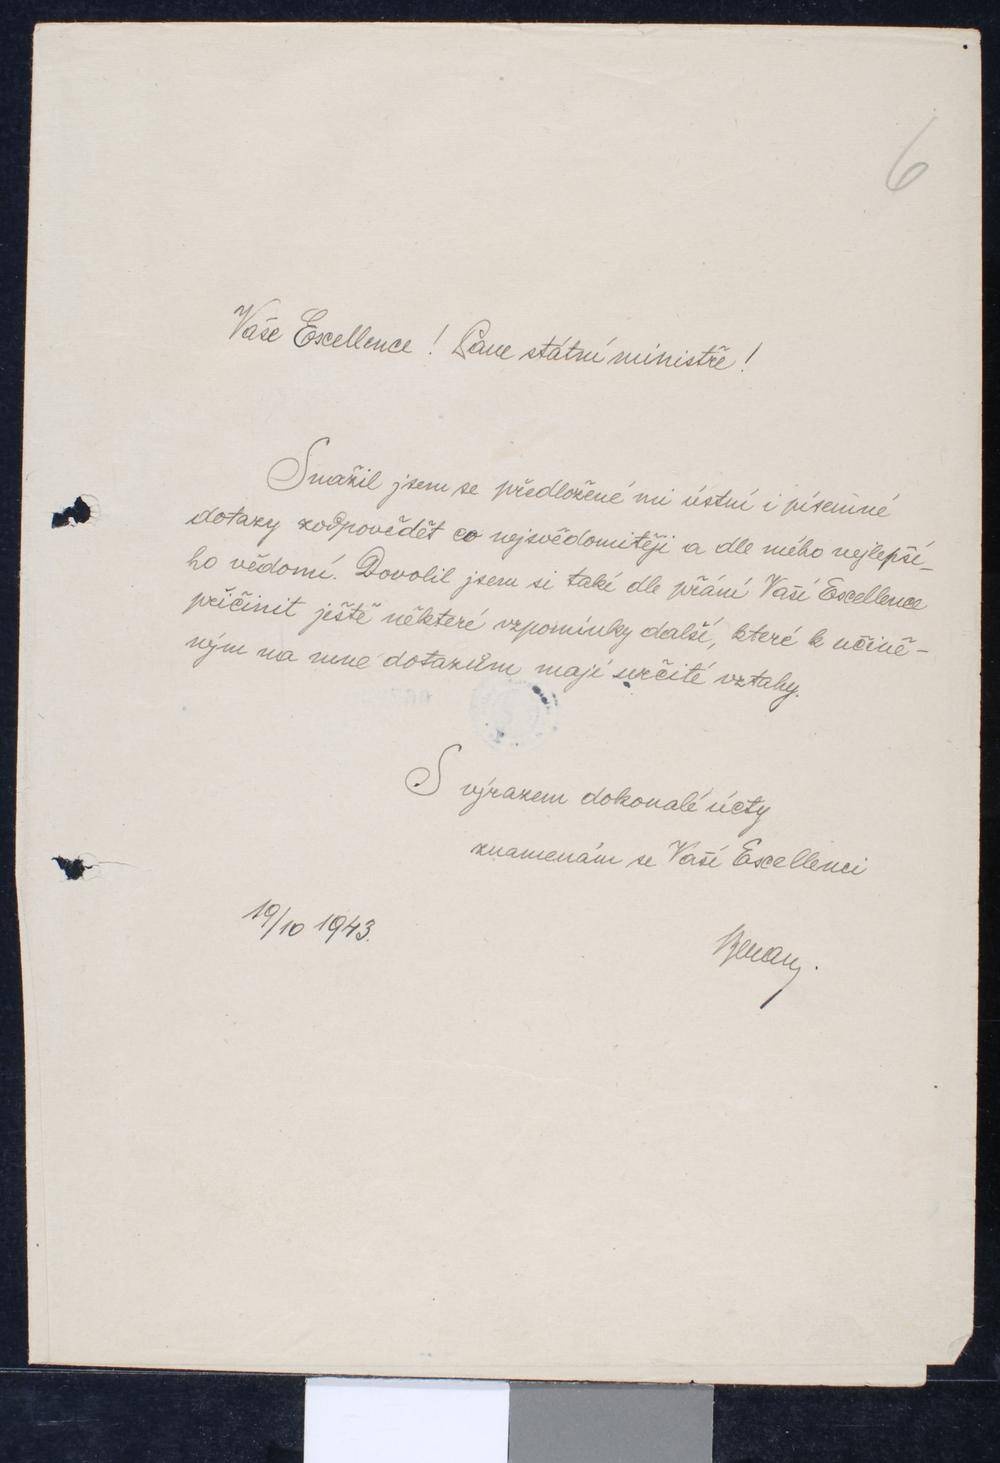 6
Vaše Excellence! Pane státní ministře!
Snažil jsem se předložené mi ústní i písemné
dotazy zodpovědět co nejsvědomitěji a dle mého nejlepší-
ho vědomí. Dovolil jsem si také dle přání Vaší Excellence
přičinit ještě některé vzpomínky další, které k učině-
ným na mne dotazům mají určité vztahy.
S výrazem dokonalé úcty
znamenám se Vaší Excellenci
19/10 1943.